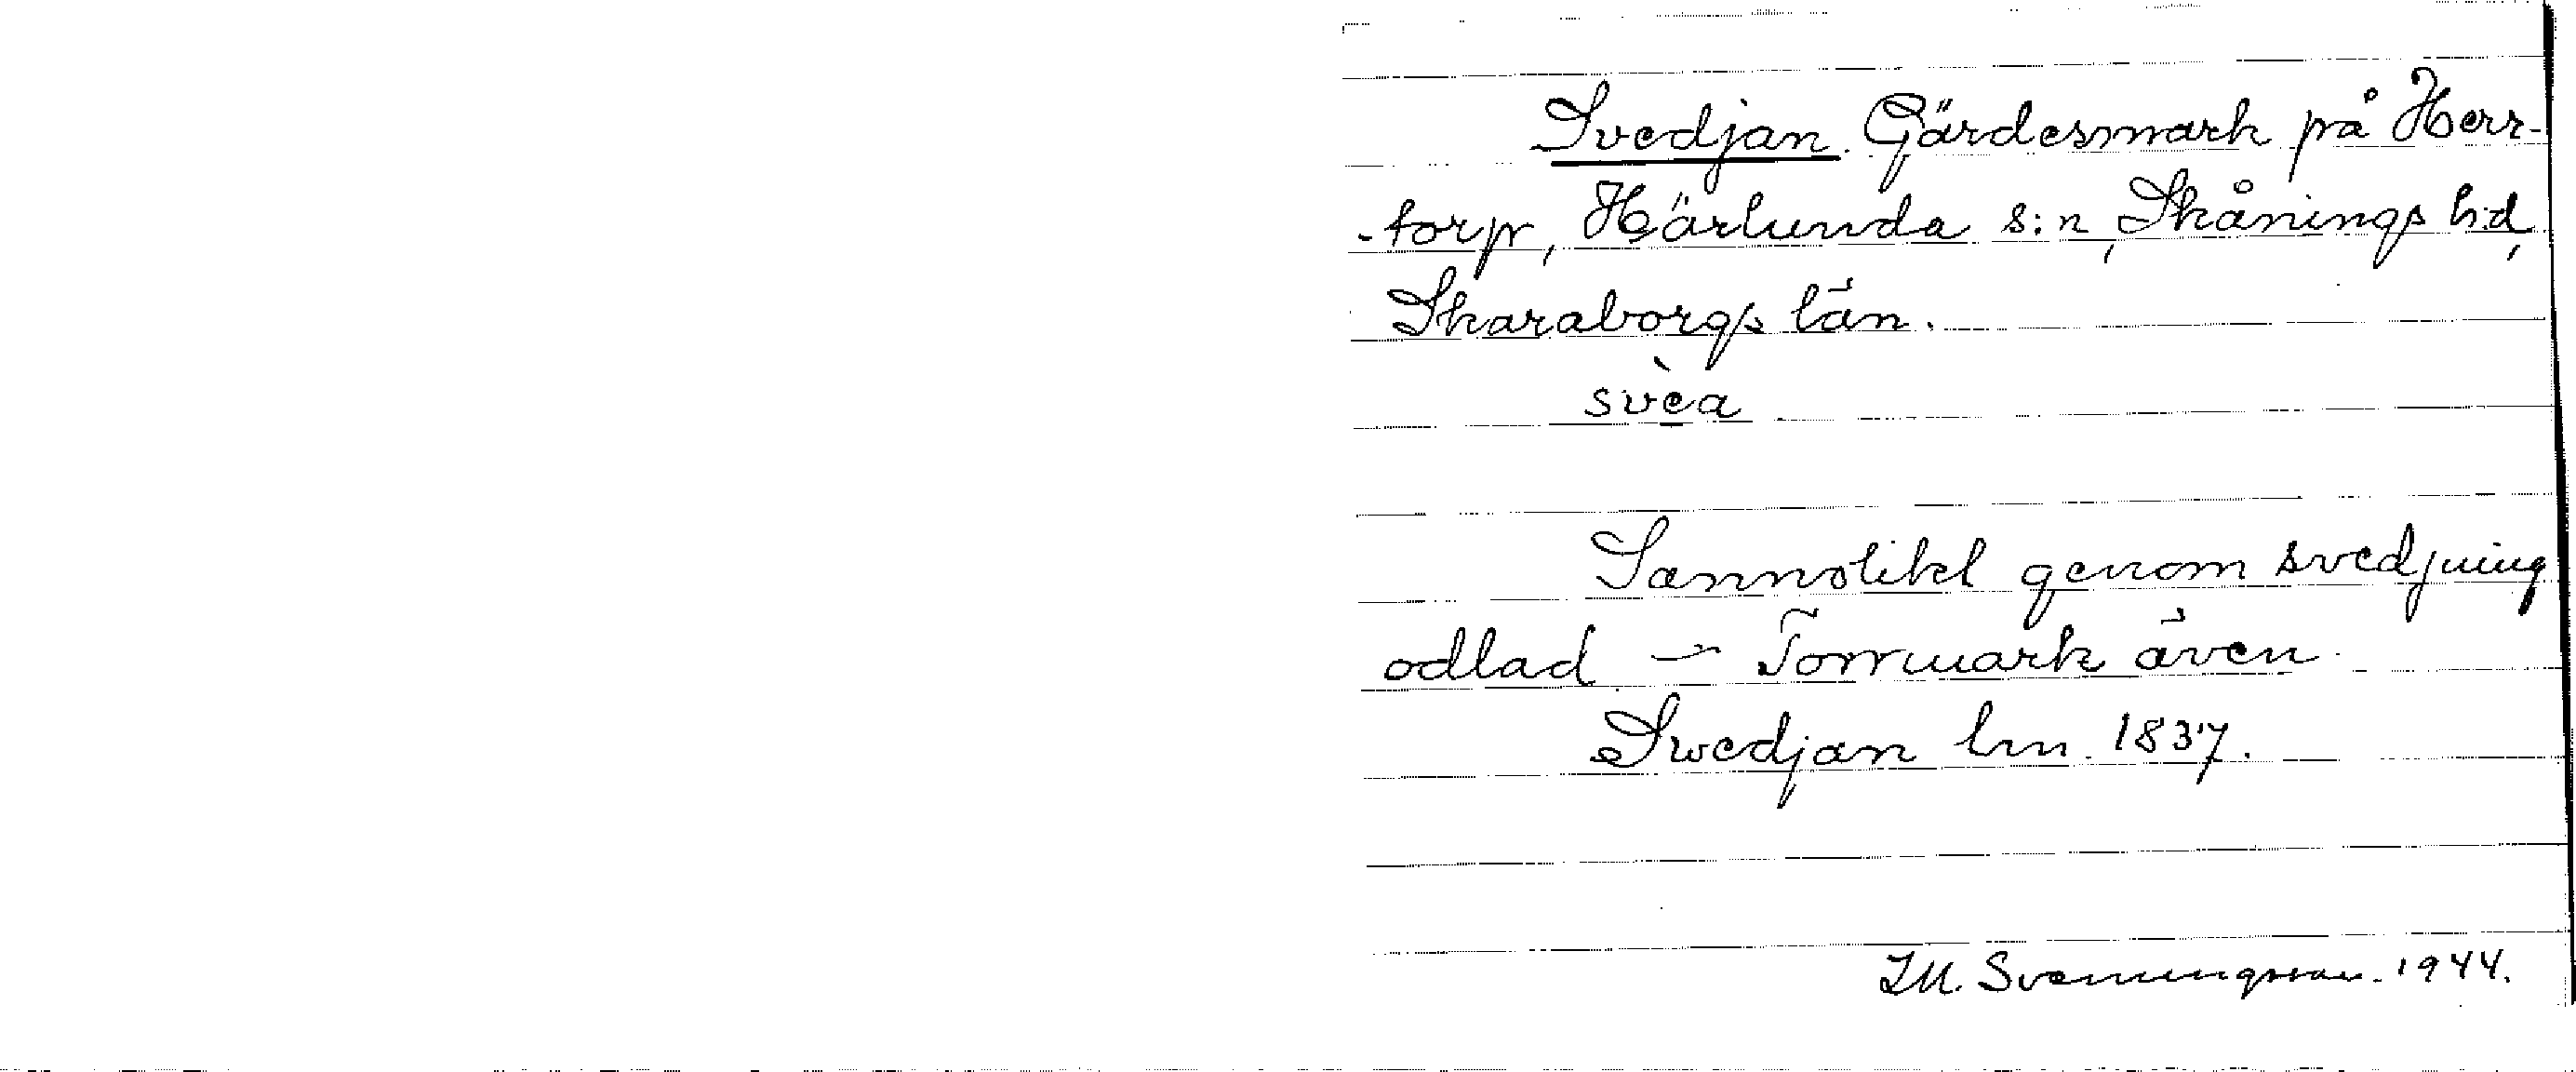 Svedjan. Gärdesmark på Herr-
-torp, Härlunda s:n, Skånings hd,
Skaraborgs län.
svèa
Sannolikt genom svedjning
odlad – Torrmark även
Swedjan hm. 1837.
I.M. Svenningsson. 1944.